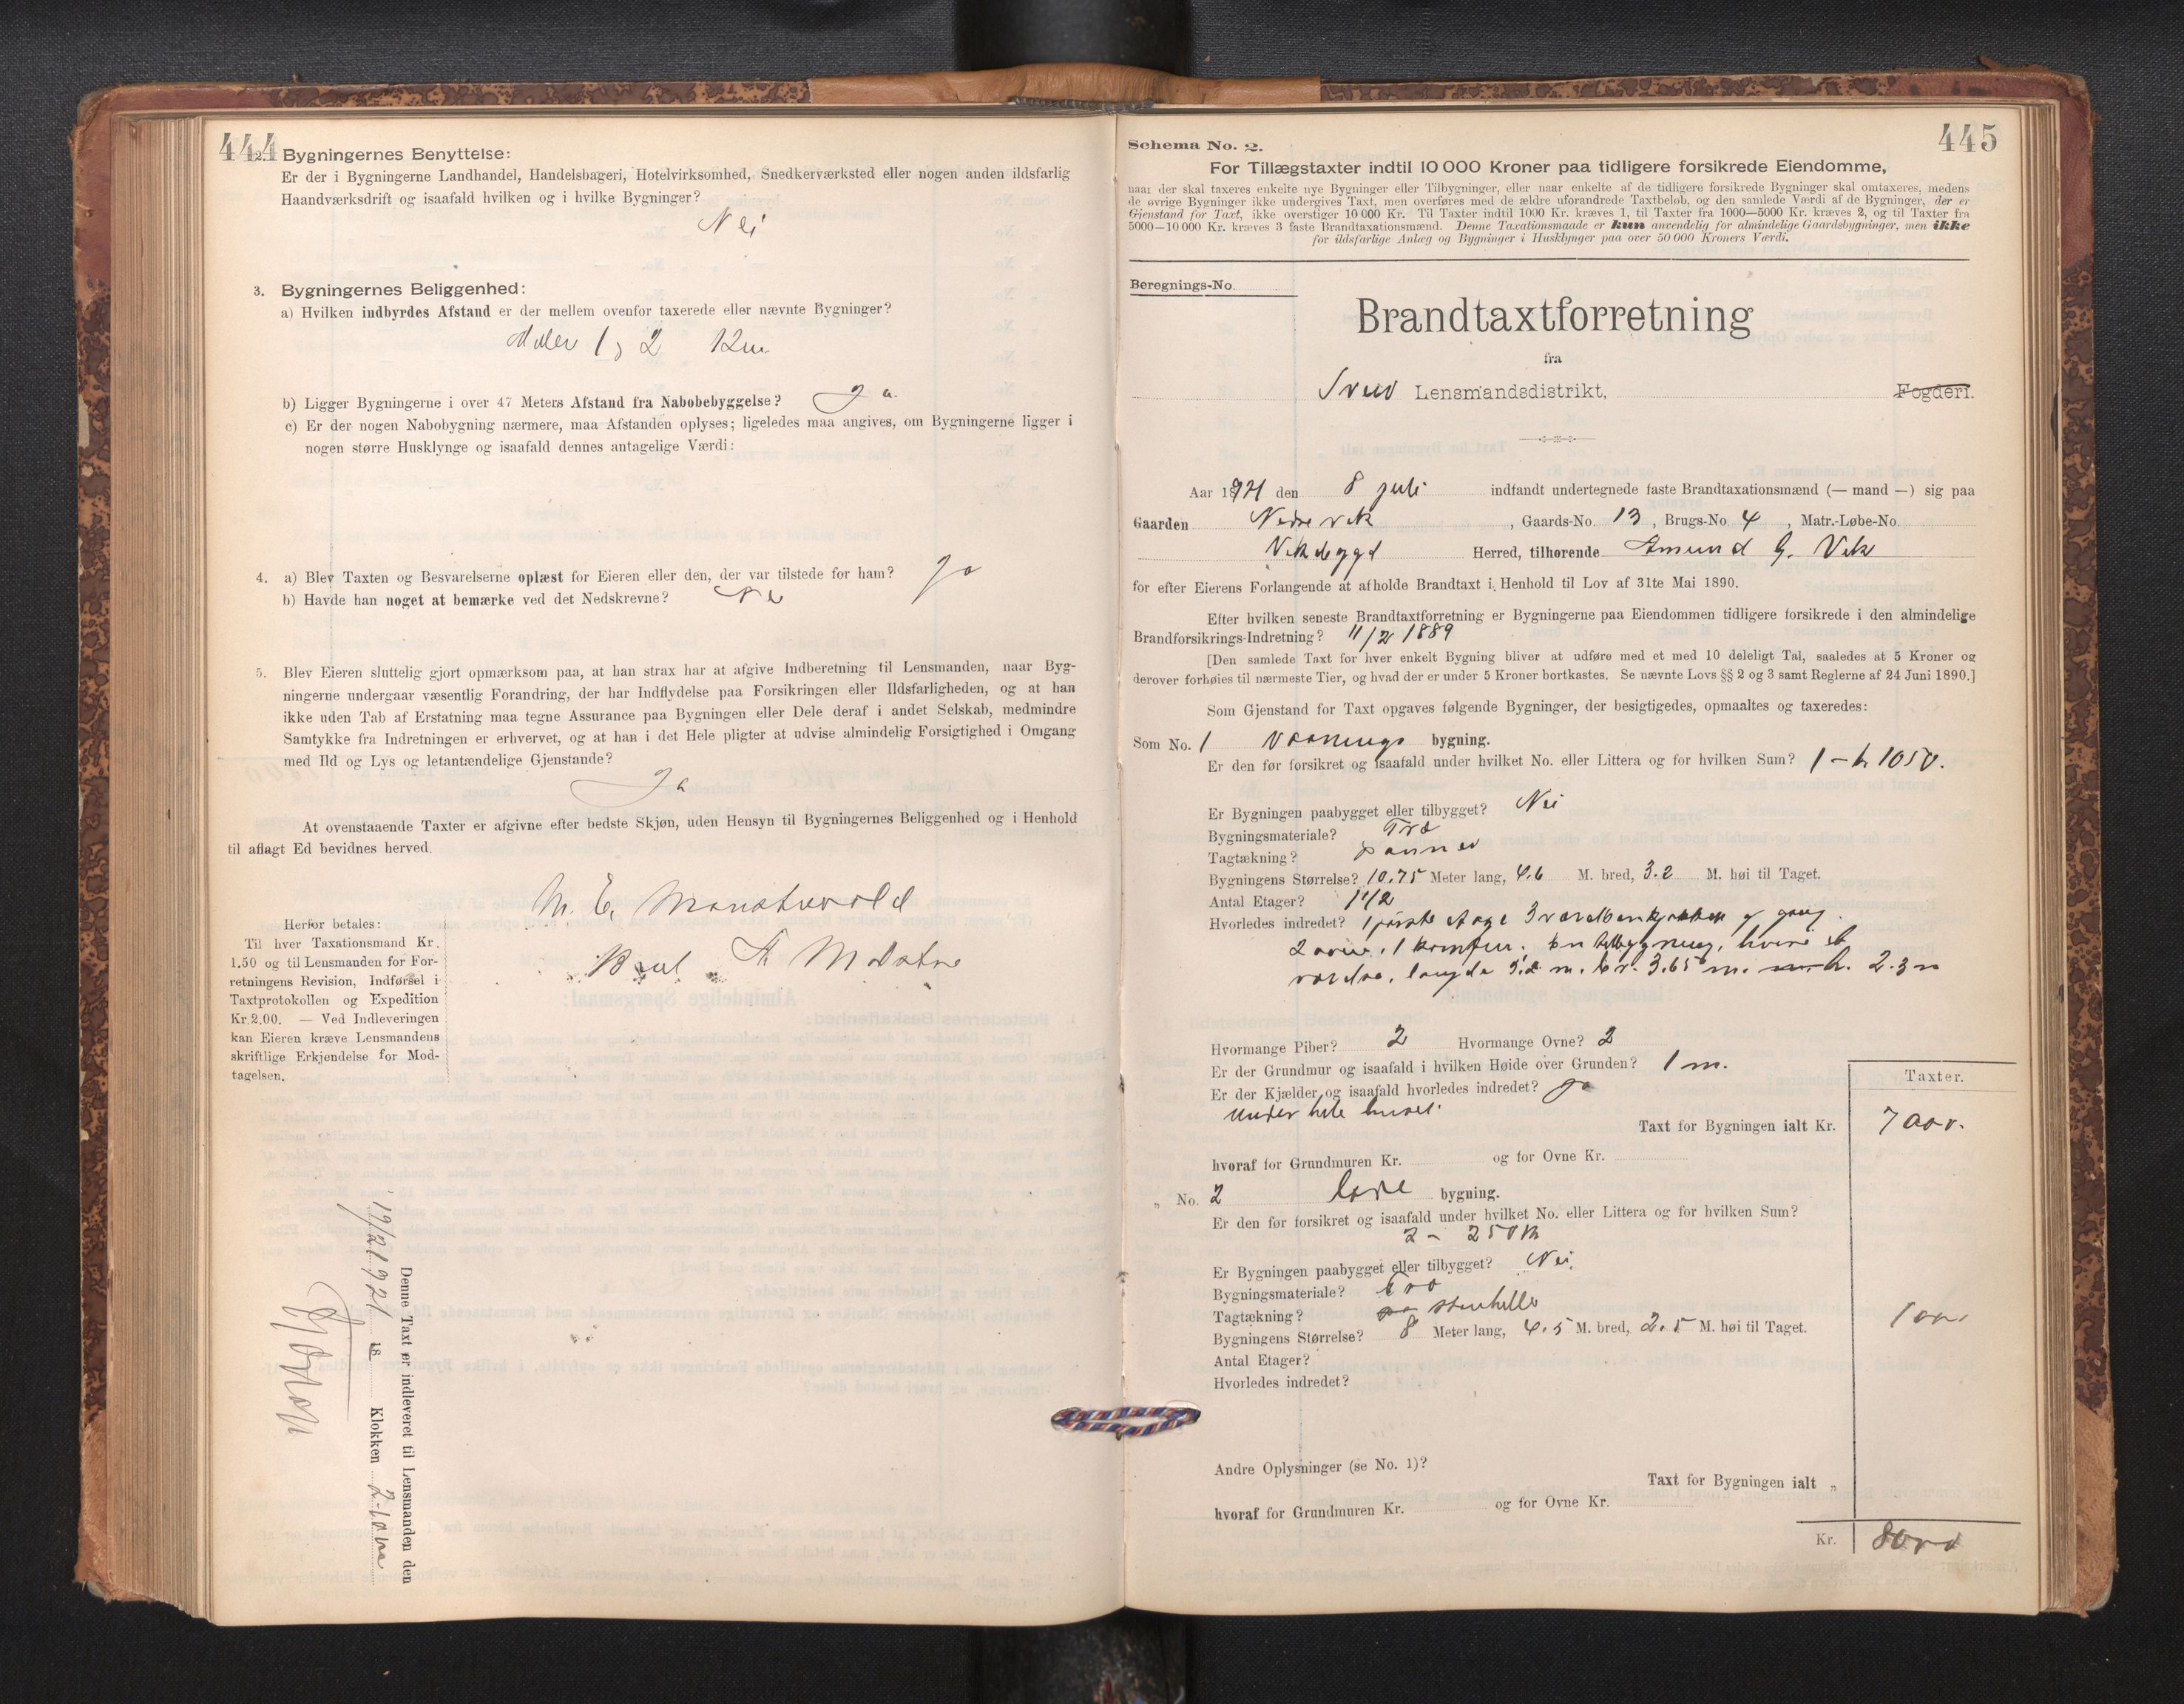 444
2. Bygningernes Benyttelse:
Er der i Bygningerne Landhandel, Handelsbageri, Hotelvirksomhed, Snedkerværksted eller nogen anden ildsfarlig
Haandværksdrift og isaafald hvilken og i hvilke Bygninger?
Nei
3. Bygningernes Beliggenhed:
a) Hvilken indbyrdes Afstand er der mellem ovenfor taxerede eller nævnte Bygninger?
1 og 2 12m
b) Ligger Bygningerne i over 47 Meters Afstand fra Nabobebyggelse? Ja
c) Er der nogen Nabobygning nærmere, maa Afstanden oplyses; ligeledes maa angives, om Bygningerne ligger i
nogen større Husklynge og isaafald dennes antagelige Værdi:
4. a) Blev Taxten og Besvarelserne oplæst for Eieren eller den, der var tilstede for ham? Ja
b) Havde han noget at bemærke ved det Nedskrevne? Nei
5. Blev Eieren sluttelig gjort opmærksom paa, at han strax har at afgive Indberetning til Lensmanden, naar Byg-
ningerne undergaar væsentlig Forandring, der har Indflydelse paa Forsikringen eller Ildsfarligheden, og at han
ikke uden Tab af Erstatning maa tegne Assurance paa Bygningen eller Dele deraf i andet Selskab, medmindre
Samtykke fra Indretningen er erhvervet, og at han i det Hele pligter at udvise almindelig Forsigtighed i Omgang
med Ild og Lys og letantændelige Gjenstande?
Ja
At ovenstaaende Taxter er afgivne efter bedste Skjøn, uden Hensyn til Bygningernes Beliggenhed og i Henhold
til aflagt Ed bevidnes herved.
M. E.
Herfor betales:
Til hver Taxationsmand Kr.
1.50 og til Lensmanden for For-
retningens Revision, Indførsel i
Taxtprotokollen og Expedition
Kr. 2.00. — Ved Indleveringen
kan Eieren kræve Lensmandens
skriftlige Erkjendelse for Mod-
tagelsen.
Denne Taxt er indleveret til Lensmanden den
19/2 1921 18 Klokken 2
445
Schema No. 2.
For Tillægstaxter indtil 10 000 Kroner paa tidligere forsikrede Eiendomme,
naar der skal taxeres enkelte nye Bygninger eller Tilbygninger, eller naar enkelte af de tidligere forsikrede Bygninger skal omtaxeres, medens
de øvrige Bygninger ikke undergives Taxt, men overføres med de ældre uforandrede Taxtbeløb, og den samlede Værdi af de Bygninger, der er
Gjenstand for Taxt, ikke overstiger 10 000 Kr. Til Taxter indtil 1000 Kr. kræves 1, til Taxter fra 1000—5000 Kr. kræves 2, og til Taxter fra
5000—10 000 Kr. kræves 3 faste Brandtaxationsmænd. Denne Taxationsmaade er kun anvendelig for almindelige Gaardsbygninger, men ikke
for ildsfarlige Anlæg og Bygninger i Husklynger paa over 50 000 Kroners Værdi.
Beregnings-No.
Brandtaxtforretning
fra
Sveio Lensmandsdistrikt, Fogderi.
Aar 1921 den 8 juli indfandt undertegnede faste Brandtaxationsmænd (— mand —) sig paa
Gaarden Nedre vik, Gaards-No. 13, Brugs-No. 4, Matr.-Løbe-No.
Vikebygd Herred, tilhørende Amund G. Vik
for efter Eierens Forlangende at afholde Brandtaxt i Henhold til Lov af 31te Mai 1890.
Efter hvilken seneste Brandtaxtforretning er Bygningerne paa Eiendommen tidligere forsikrede i den almindelige
Brandforsikrings-Indretning? 11/2 1889
[Den samlede Taxt for hver enkelt Bygning bliver at udføre med et med 10 deleligt Tal, saaledes at 5 Kroner og
derover forhøies til nærmeste Tier, og hvad der er under 5 Kroner bortkastes. Se nævnte Lovs §§ 2 og 3 samt Reglerne af 24 Juni 1890.]
Som Gjenstand for Taxt opgaves følgende Bygninger, der besigtigedes, opmaaltes og taxeredes:
Som No. 1 Vaanings bygning.
Er den før forsikret og isaafald under hvilket No. eller Littera og for hvilken Sum? 1 – kr 1050.
Er Bygningen paabygget eller tilbygget? Nei
Bygningsmateriale? Træ
Tagtækning? panner
Bygningens Størrelse? 10.75 Meter lang, 4.6 M. bred, 3.2 M. høi til Taget.
Antal Etager? 1 1/2
Hvorledes indredet? 1 første etage 3 værelser kjøkken og gang.
2 ovne. 1 komfur. En tilbygning, hvori et
værelse. længde 5.2 m. br. 3.65 m. h. 2.3 m
Hvormange Piber? 2 Hvormange Ovne? 2
Er der Grundmur og isaafald i hvilken Høide over Grunden? 1 m.
Er der Kjælder og isaafald hvorledes indredet? Ja
under hele huset.
Taxter.
Taxt for Bygningen ialt Kr. 7000.
hvoraf for Grundmuren Kr. og for Ovne Kr.
„ No. 2 Løe bygning.
Er den før forsikret og isaafald under hvilket No. eller Littera og for hvilken Sum?
2 – 250 kr
Er Bygningen paabygget eller tilbygget? Nei.
Bygningsmateriale? træ
Tagtækning? stenhelle
Bygningens Størrelse? 8 Meter lang, 4.5 M. bred, 2.5 M. høi til Taget.
1000
Antal Etager?
Hvorledes indredet?
Andre Oplysninger (se No. 1)?
Taxt for Bygningen ialt „
hvoraf for Grundmuren Kr. og for Ovne Kr.
Kr. 8000